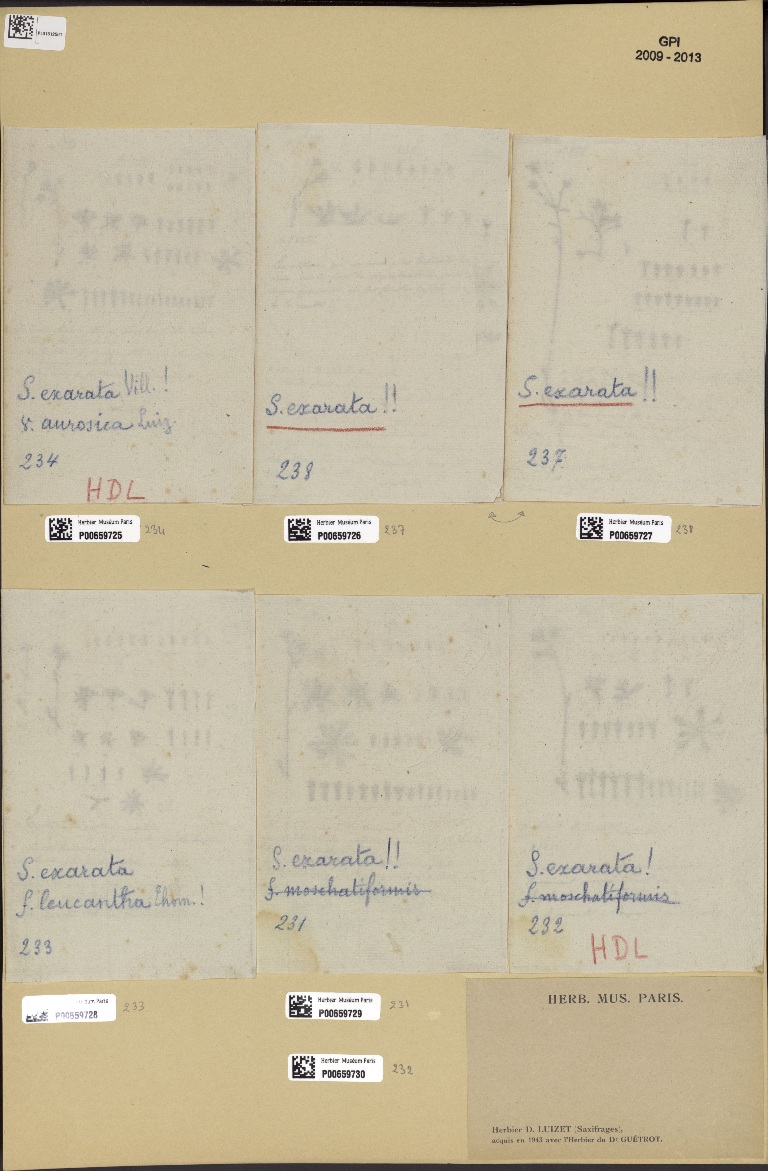 GPI
2009 - 2013
S. exarata Vill. !
v. aurosica Luiz
234
HDL
S. exarata !!
238
S. exarata !!
237
Herbier Muséum Paris
P00659725
234
Herbier Muséum Paris
P00659726
237
Herbier Muséum Paris
P00659727
238
S. exarata
f. leucantha Thom. !
233
S. exarata !!
f. moschatiformis
231
S. exarata !
f. moschatiformis
232
HDL
P00659728
233
Herbier Muséum Paris
P00659729
231
Herbier Muséum Paris
P00659730
232
HERB. MUS. PARIS.
Herbier D. LUIZET (Saxifrages),
acquis en 1943 avec l'Herbier du Dr GUÉTROT.